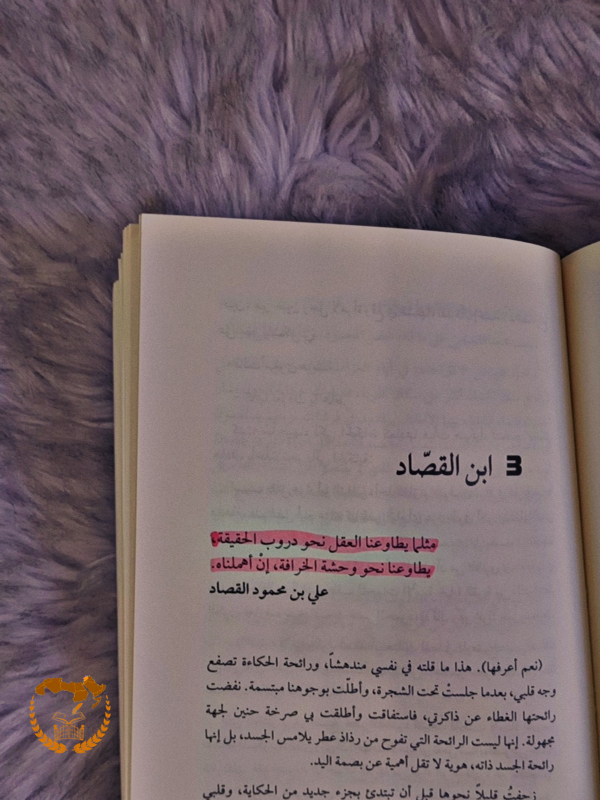 3 ابن القصّاد
مثلما يطاوعنا العقل نحو دروب الحقيقة،
يطاوعنا نحو وحشة الخرافة، إنْ أهملناه.
علي بن محمود القصاد
(نعم أعرفها). هذا ما قلته في نفسي مندهشاً، ورائحة الحكاءة تصفع
وجه قلبي، بعدما جلستْ تحت الشجرة، وأطلّت بوجوهنا مبتسمة. نفضت
رائحتها الغطاء عن ذاكرتي، فاستفاقت وأطلقت بي صرخة حنين لجهة
مجهولة. إنها ليست الرائحة التي تفوح من رذاذ عطر يلامس الجسد، بل إنها
رائحة الجسد ذاته، هوية لا تقل أهمية عن بصمة اليد.
زحفتُ قليلاً نحوها قبل أن تبتدئ بجزء جديد من الحكاية، وقلبي